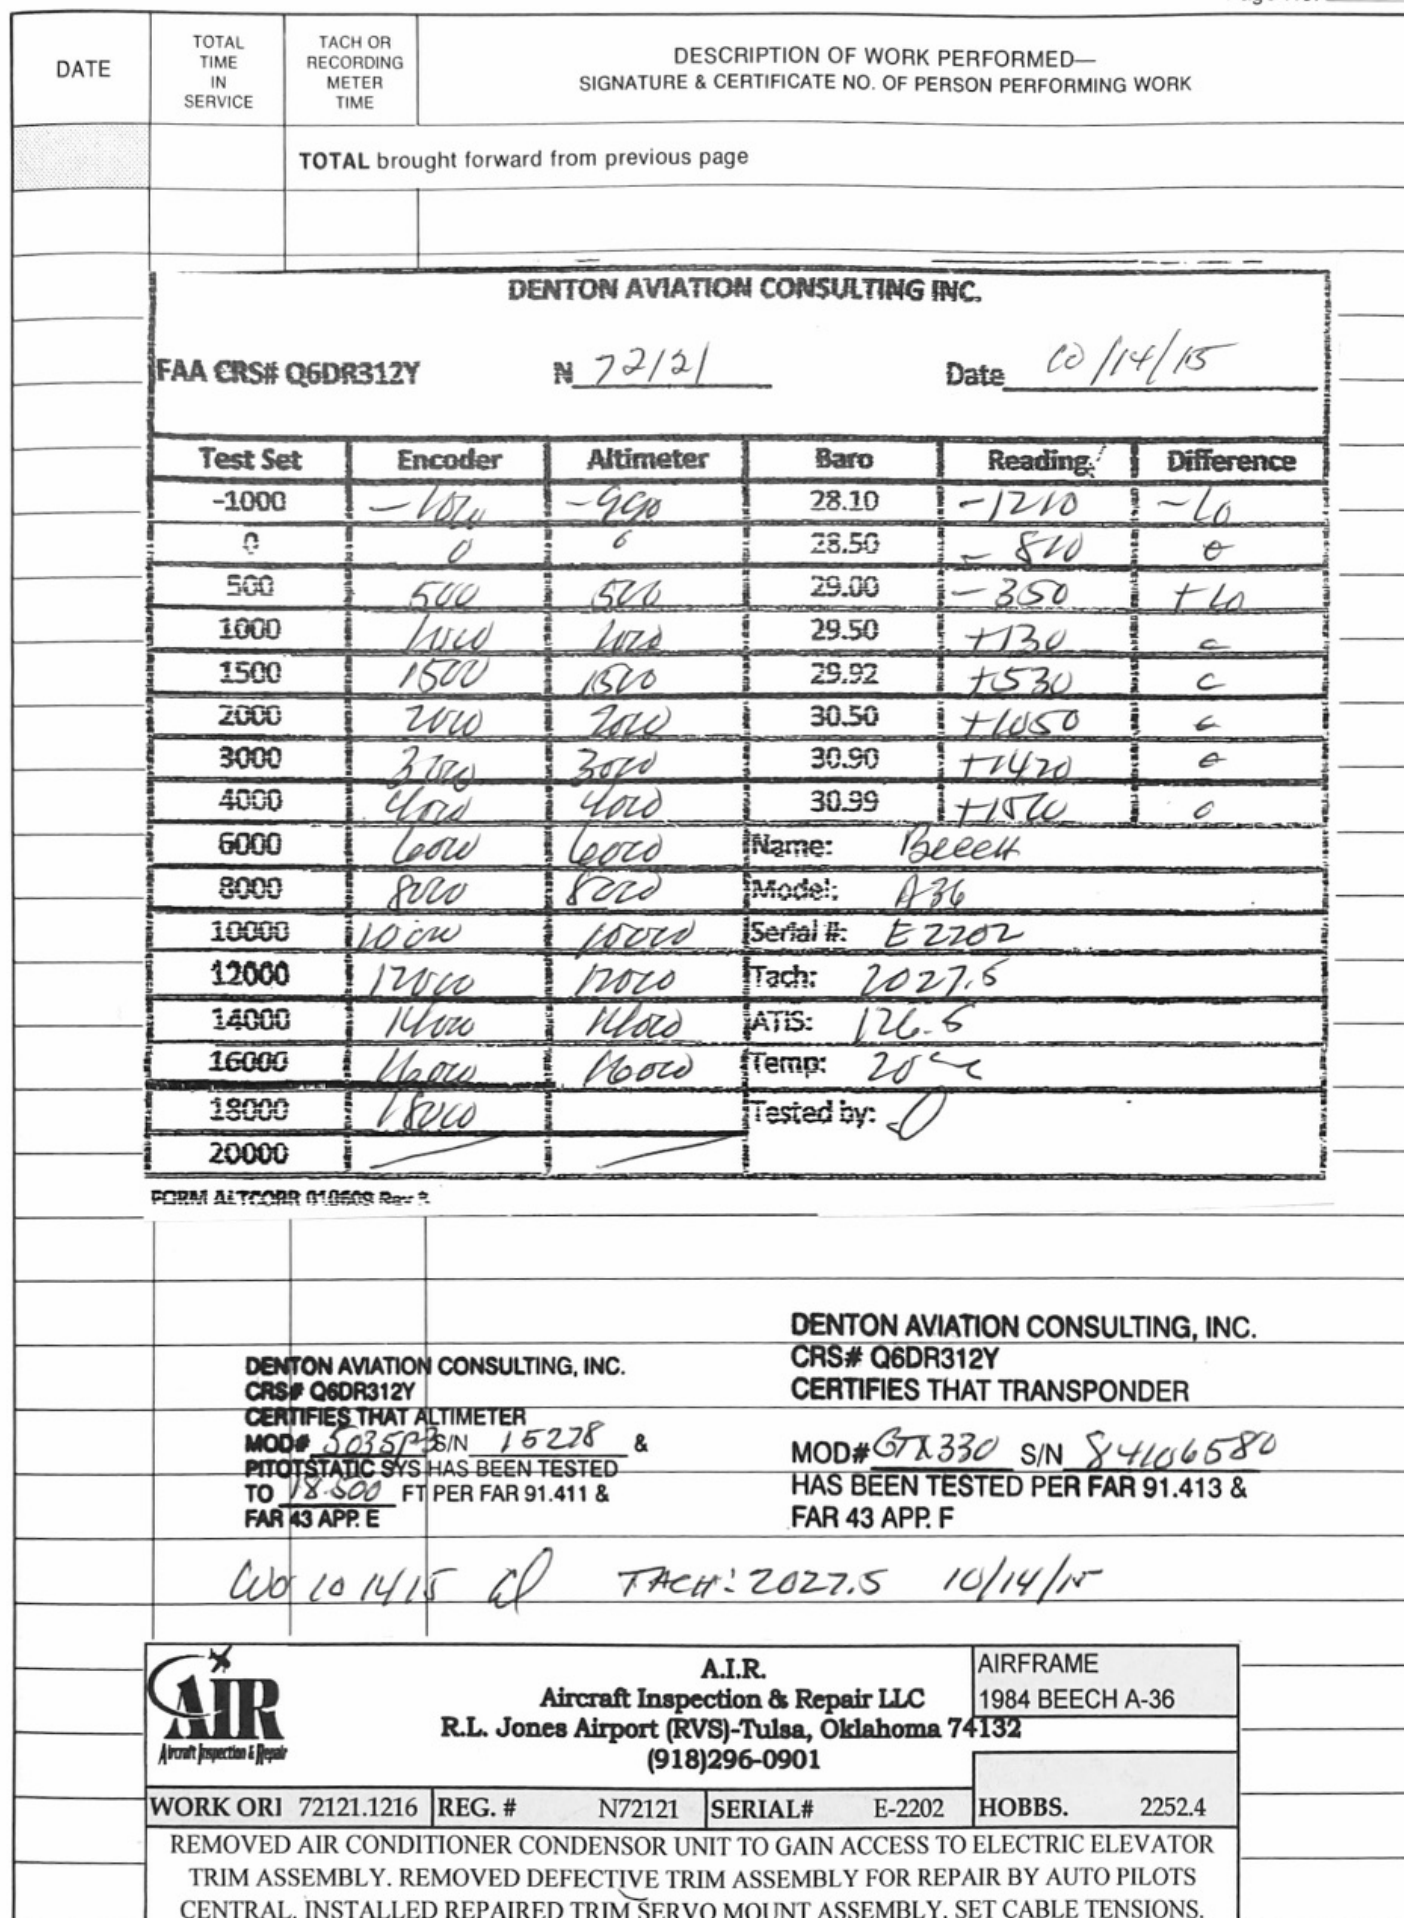 DATE
TOTAL TIME IN SERVICE
TACH OR RECORDING METER TIME
DESCRIPTION OF WORK PERFORMED—
SIGNATURE & CERTIFICATE NO. OF PERSON PERFORMING WORK
TOTAL brought forward from previous page
DENTON AVIATION CONSULTING INC.
FAA CRS# Q6DR312Y N 72121 Date 10/14/15
Test Set Encoder Altimeter Baro Reading Difference
-1000 -1000 -990 28.10 -1210 -10
0 0 0 28.50 -810 0
500 500 500 29.00 -350 +10
1000 1000 1000 29.50 +130 0
1500 1500 1500 29.92 +530 0
2000 2000 2000 30.50 +1050 0
3000 3000 3000 30.90 +1420 0
4000 4000 4000 30.99 +1500 0
6000 6000 6000 Name: Beech
8000 8000 8000 Model: A36
10000 10000 10000 Serial #: E2202
12000 12000 12000 Tach: 2027.5
14000 14000 14000 ATIS: 126.5
16000 16000 16000 Temp: 20°C
18000 18000 Tested by:
20000
FORM ALTCORR 010609 Rev
DENTON AVIATION CONSULTING, INC.
CRS# Q6DR312Y
CERTIFIES THAT ALTIMETER
MOD# 5035P3 S/N 15278 &
PITOTSTATIC SYS HAS BEEN TESTED
TO 18500 FT PER FAR 91.411 &
FAR 43 APP. E
DENTON AVIATION CONSULTING, INC.
CRS# Q6DR312Y
CERTIFIES THAT TRANSPONDER
MOD# GTX330 S/N 84106580
HAS BEEN TESTED PER FAR 91.413 &
FAR 43 APP. F
WO 101415 TACH: 2027.5 10/14/15
AIR
Aircraft Inspection & Repair
A.I.R.
Aircraft Inspection & Repair LLC
R.L. Jones Airport (RVS)-Tulsa, Oklahoma 74132
(918)296-0901
AIRFRAME
1984 BEECH A-36
WORK ORI 72121.1216 REG. # N72121 SERIAL# E-2202 HOBBS. 2252.4
REMOVED AIR CONDITIONER CONDENSOR UNIT TO GAIN ACCESS TO ELECTRIC ELEVATOR
TRIM ASSEMBLY. REMOVED DEFECTIVE TRIM ASSEMBLY FOR REPAIR BY AUTO PILOTS
CENTRAL. INSTALLED REPAIRED TRIM SERVO MOUNT ASSEMBLY. SET CABLE TENSIONS.